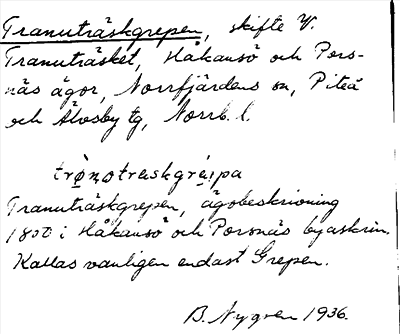 Tranuträskgrepen, skifte V.
Tranuträsket, Håkansö och Pors-
näs ägor, Norrfjärdens sn, Piteå
och Älvsby tg, Norrb. l.
trå̀notraskgrǽipa
Tranuträskgrepen, ägobeskrivning
1800 i Håkansö och Porsnäs byaskrin.
Kallas vanligen endast Grepen.
B. Nygren 1936.